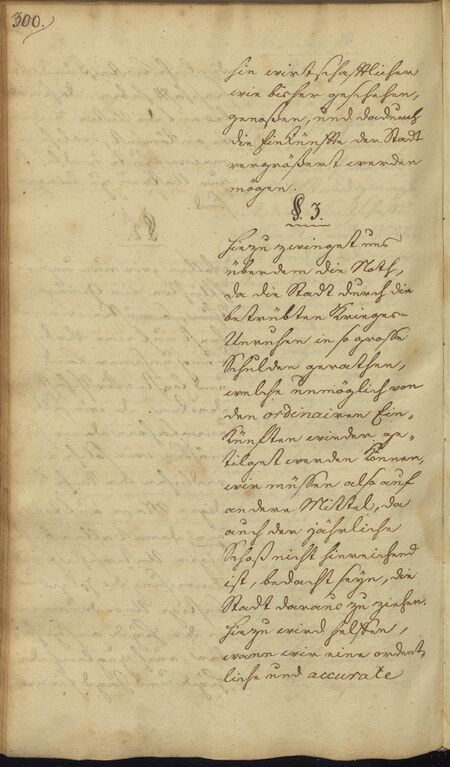 300.
hin wirtschafftlicher
wie bisher geschehen,
genoßen, und dadurch
die Einkünffte der Stadt
vergrößert werden
mögen.
§. 3.
Hiezu zwinget uns
überdem die Noth,
da die Stadt durch die
betrübten Krieges-
Unruhen in so grosse
Schulden gerathen,
welche unmöglich von
den ordinairen Ein-
künfften wieder ge-
tilget werden können,
wir müssen also auf
andere Mittel, da
auch der jährliche
Schoß nicht hinreichend
ist, bedacht seyn, die
Stadt daraus zu ziehen.
Hiezu wird helffen,
wann wir eine ordent-
liche und accurate